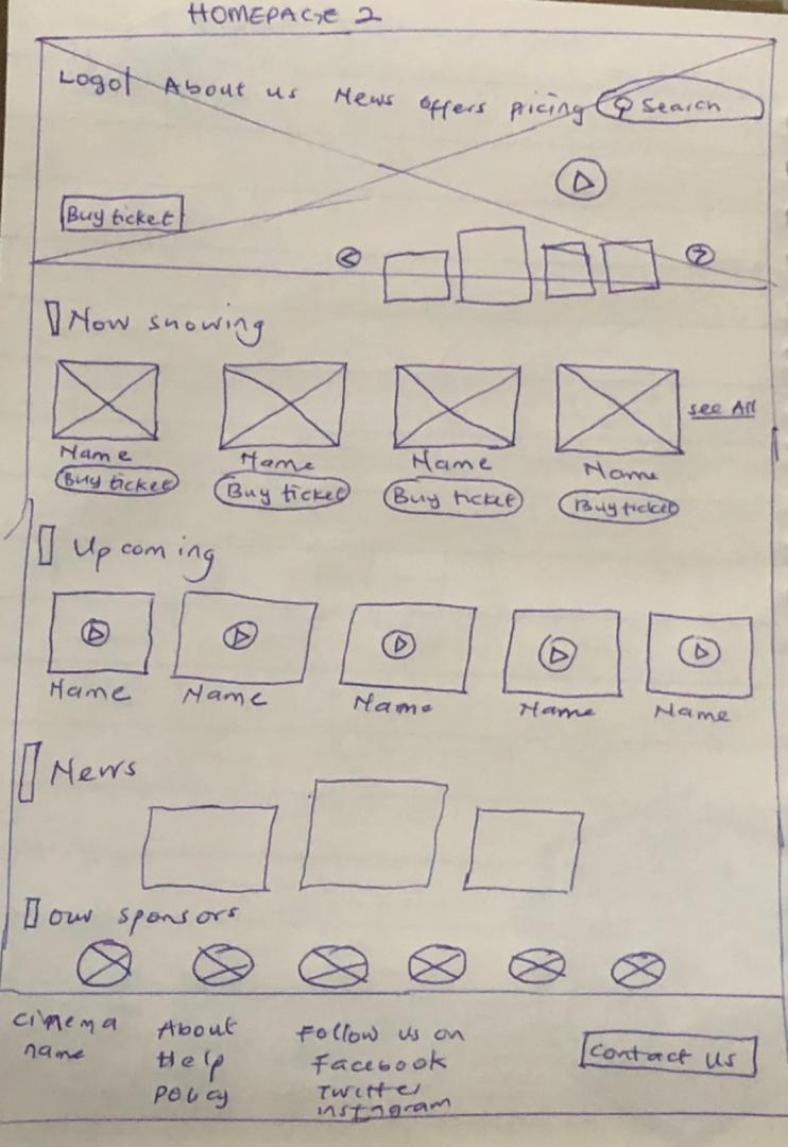 HOMEPAGE 2
Logo| About us News offers pricing Search
Buy ticket
Now showing
see All
Name Name Name Name
Buy ticket Buy ticket Buy ticket Buy ticket
Upcoming
Name Name Name Name Name
News
our sponsors
cinema name
About
Help
Policy
Follow us on
Facebook
Twitter
instagram
Contact us